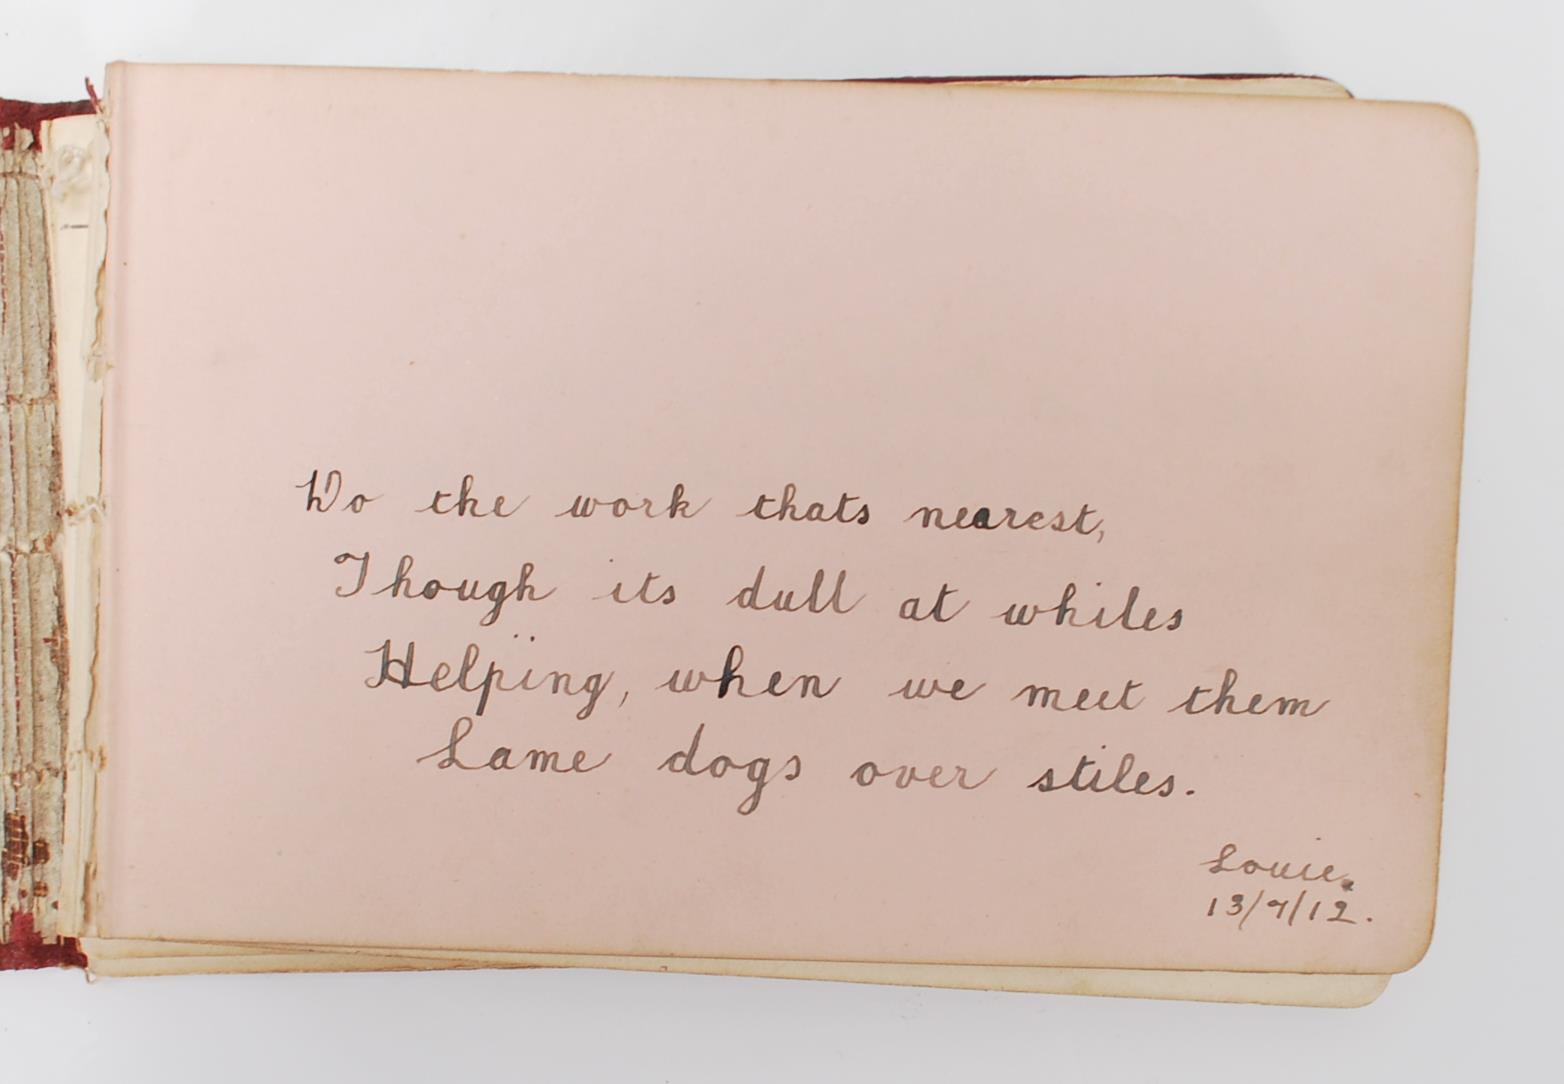 Do the work thats nearest,
Though its dull at whiles
Helping, when we meet them
Lame dogs over stiles.
Louie.
13/7/12.